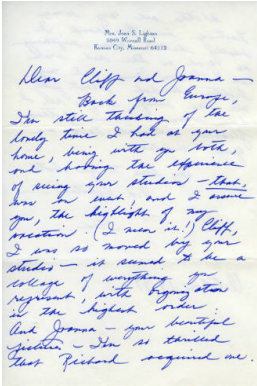 Mrs. Jean S. Lighton
Kansas City, Missouri 64113
Dear Cliff and Joanna —
Back from Europe,
I'm still thinking of the
lovely time I had at your
home, being with you both,
and having the experience
of seeing your studios — that
was an event, and I assure
you, the highlight of my
vacation. (I mean it!) Cliff,
I was so moved by your
studio — it seemed to be a
collage of everything you
represent, with organization
in the highest order.
And Joanna — your beautiful
pictures — I'm so thrilled
that Richard acquired one.